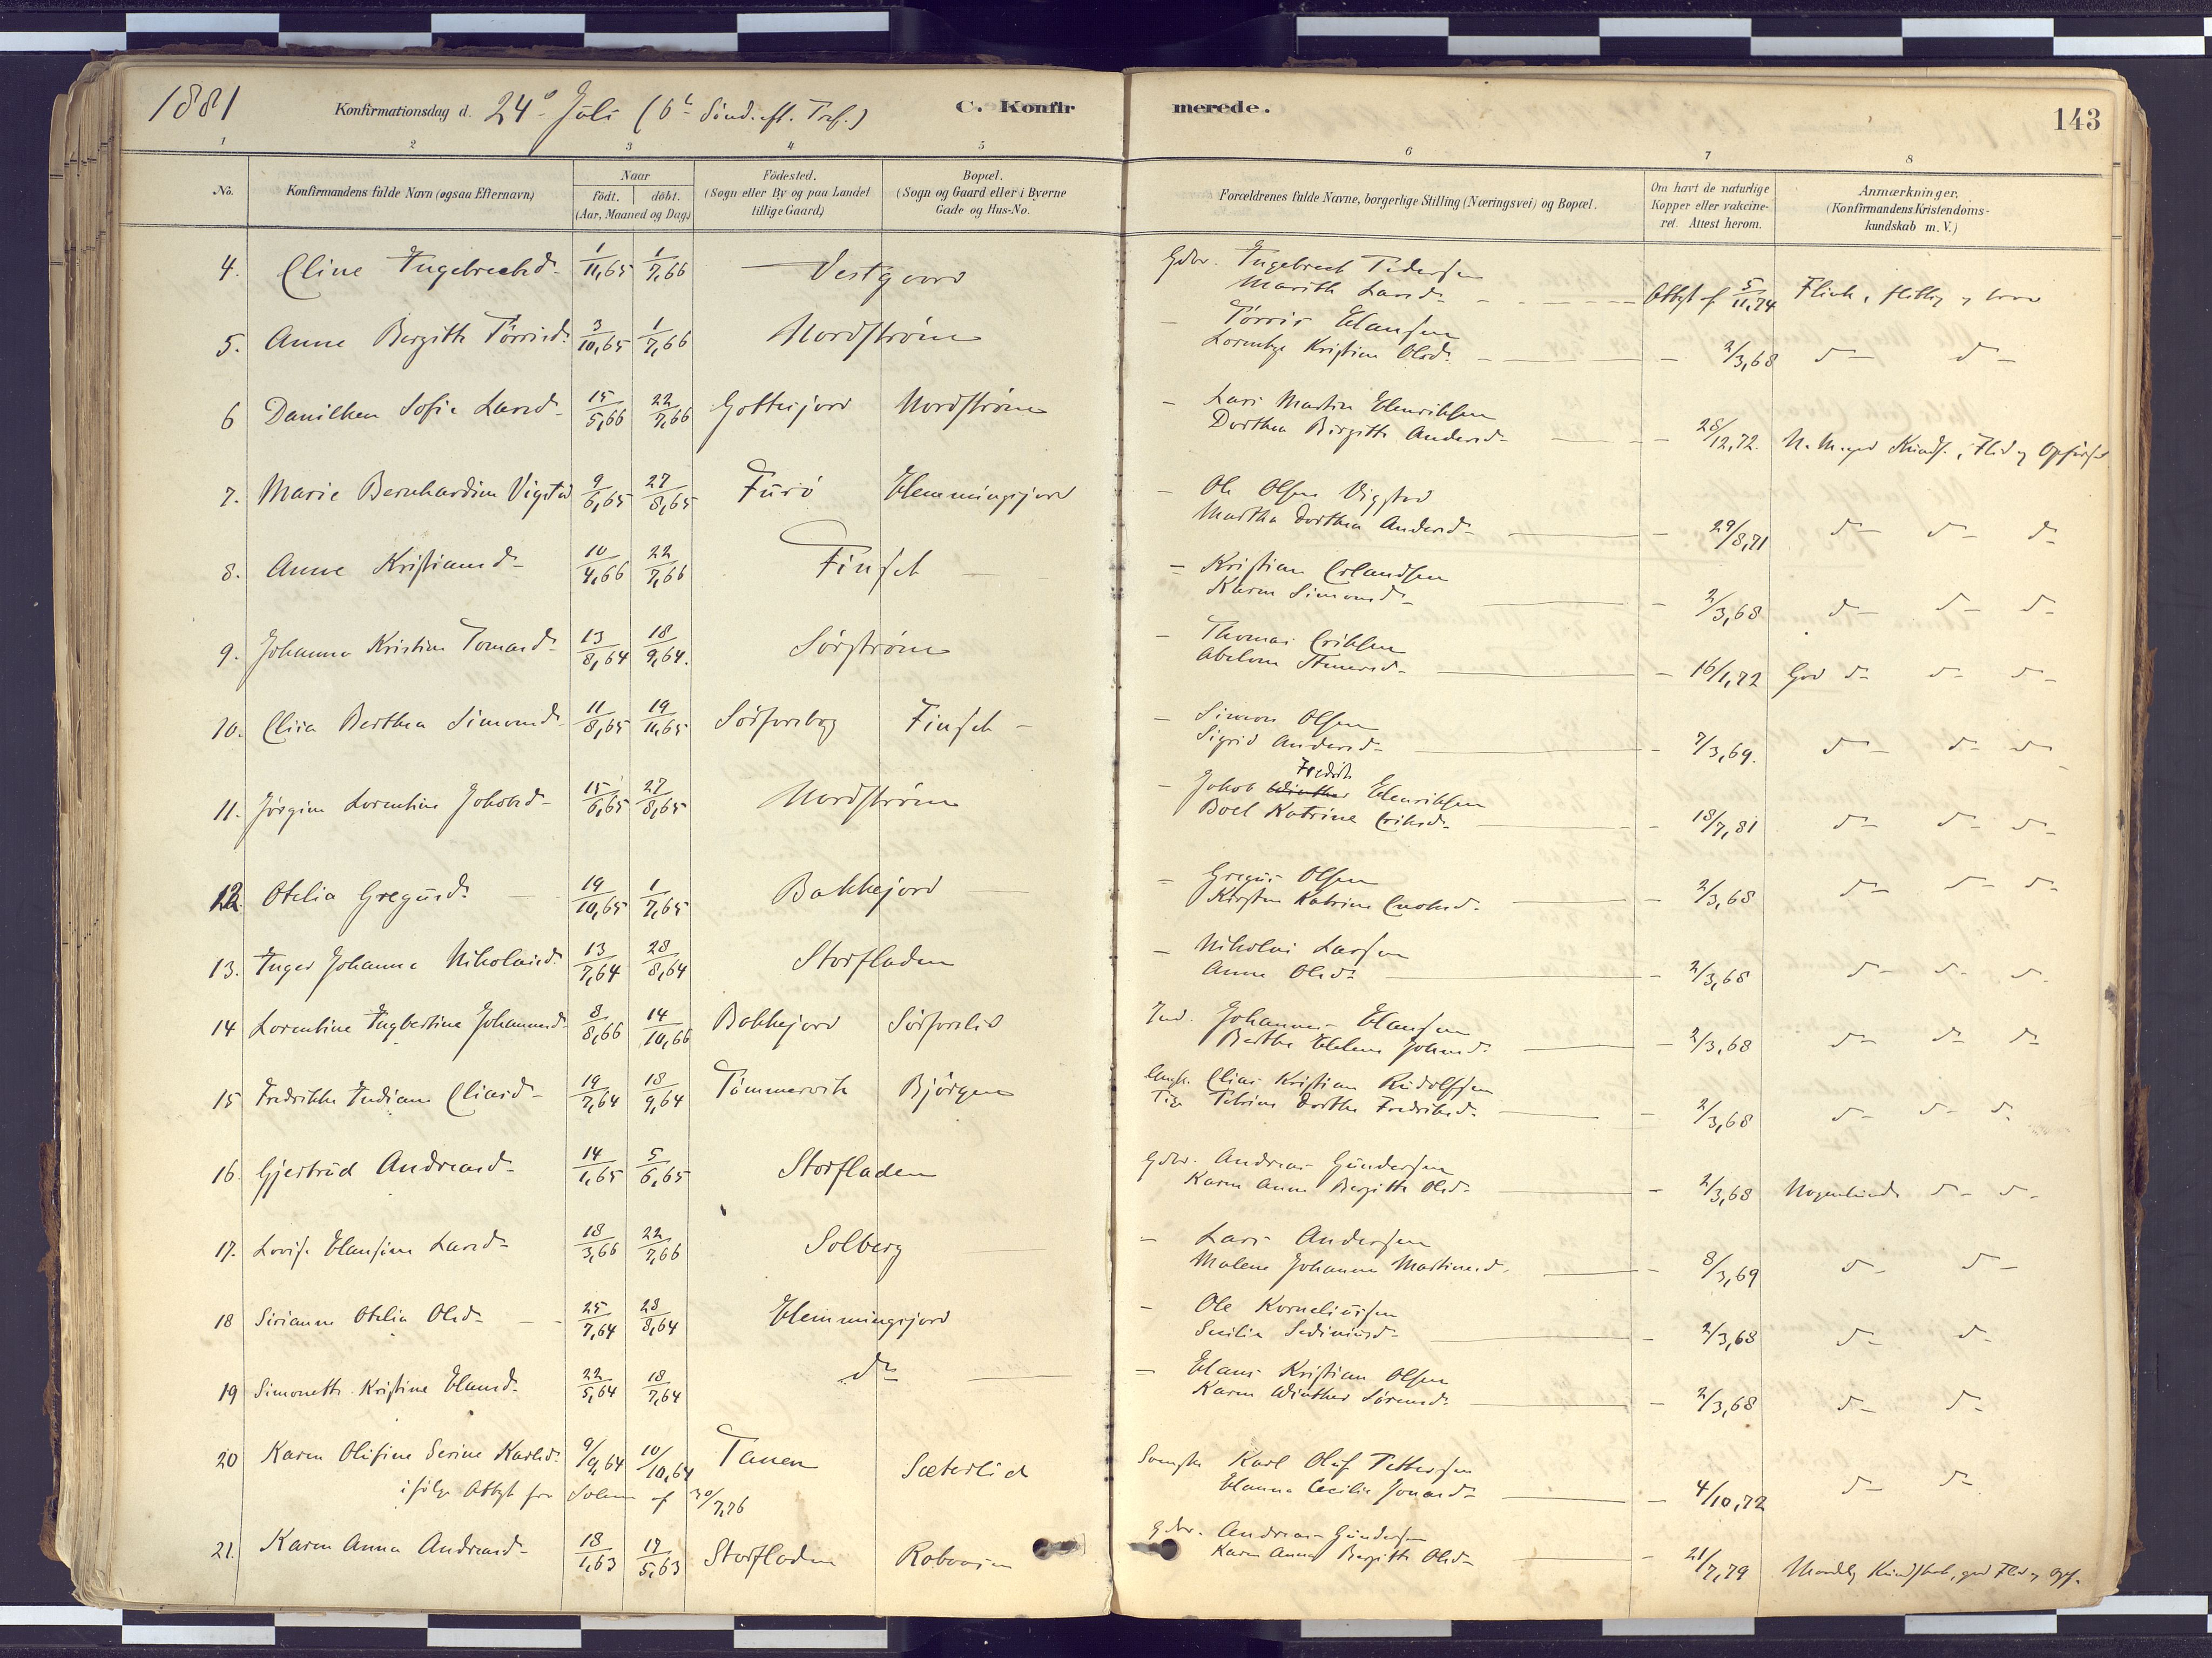 1881 Konfirmationsdag d. 24de Juli (6te Sønd. eft. Tref.) C. Konfirmerede. 143
1 2 3 4 5 6 7 8
No. Konfirmandens fulde Navn (ogsaa Efternavn) Naar født. døbt. (Aar, Maaned og Dag) Födested. (Sogn eller By og paa Landet tillige Gaard) Bopæl. (Sogn og Gaard eller i Byerne Gade og Hus-No. Forældrenes fulde Navne, borgerlige Stilling (Næringsvei) og Bopæl. Om havt de naturlige Kopper eller vakcineret. Attest herom. Anmærkninger. (Konfirmandens Kristendomskundskab m. V.)
4. Eline Ingebrechtd. 1/11,65 1/7,66 Vestgaard Gdbr. Ingebrech Pedersen
Marith Larsd. Attst f 5/11,74 Flink, flittig og brav
5. Anne Bergitte Törrisd. 3/10,65 1/7,66 Nordström – Törris Hansen
Lorentze Kristine Olsd. – 2/3,68 d– d–
6 Danilken Sofie Larsd. 15/5,66 22/7,66 Gottesjord Nordström – Lars Martin Henriksen
Dorthea Birgitte Andersd. – 28/12,72. M. M.god Kundsk., Flid og Opførsel
7. Marie Bernhardine Vigstad 9/6,65 27/8,65 Furö Hemmingsjord – Ole Olsen Vigstad
Martha Dorthea Andersd. – 29/8,71 d– d– d–
8. Anne Kristiansd. 10/4,66 22/7,66 Finset – – Kristian Erlandsen
Karen Simonsd. – 2/3,68 d– d– d–
9. Johanna Kristine Tomasd. 13/8,64 18/9,64. Sörström – Thomas Eriksen
Abelone Steners d. – 16/1,72 God d– d– d–
10. Elisa Berthea Simonsd. 11/8,65 19/11,65 Sörforsbog Finset – – Simon Olsen
Sigrid Andersd. – 7/3,69. d– d– d–
11. Jörgine Lorentine Jakobsd. 15/6,65 27/8,65 Nordström – Jakob Winther Fredrik Henriksen
Boel Katrine Eriksd. – 18/7,81 d– d– d–
12. Otelia Gregusd. 19/10,65 1/7,65 Bakkejord – – Gregus Olsen
Kirsten Katrine Enoksd. – 2/3,68 d– d– d–
13. Inger Johanna Nikolaisd. 13/7,64 28/8,64 Storfladen – Nikolai Larsen
Anne Olsd. – 2/3,68 d– d– d–
14 Lorentine Ingbertine Johannesd. 8/8,66 14/10,66 Bakkejord Sörforslid Ind. Johannes Hansen
Berthe Helene Johnsd. – 2/3,68 d– d– d–
15 Fredrikke Indiane Eliasd. 19/7,64 18/9,64 Tömmervik Björgen Elias Kristian Rudolfsen
Petrine Dorthe Fredriksd. – 2/3,68 d– d– d.
16. Gjertrud Andreasd. 14/1,65 5/6,65 Storfladen Gdbr. Andreas Gundersen
Karen Anna Bergitte Olsd. – 2/3,68 Nogenlunde d– d–
17. Lovise Hansine Larsd. 18/3,66 22/7,66 Solberg – Lars Andersen
Malene Johanne Martinusd. – 8/3,69 d– d–
18 Sirianne Otelia Olsd. 25/7,64 28/8,64 Hemmingsjord – Ole Korneliussen
Secilie Sediniusd. – 2/3,68 d– d–
19 Simonette Kristine Hansd. 22/5,64 18/7,64 do – Hans Kristian Olsen
Karen Winther Sörensd. – 2/3,68 d– d–
20 Karen Olesine Serine Karlsd. 9/9,64 10/10,64 Tanen Sæterlid Svenske Karl Oluf Pettersen
Hanna Cecilie Jonasd. – 4/10,72 d– d–
ifölge Attest fra f 30/7,76
21. Karen Anna Andreasd. 18/1,63 17/5,63 Storfladen Gdbr. Andreas Gundersen
Karen Anna Bergitte Olsd. – 21/7,79 Maadelig Kundskab, god Flid og Opf.